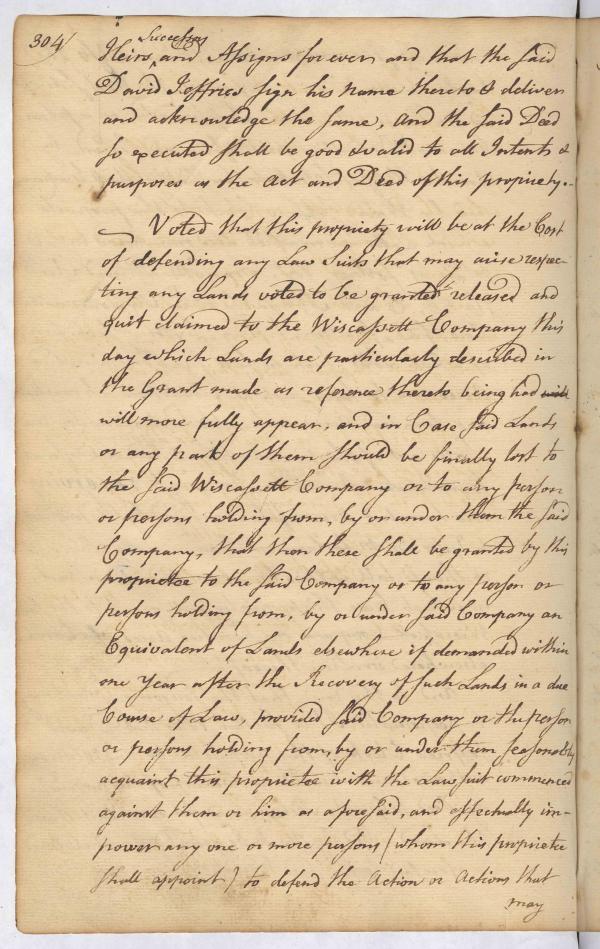 304
Successors
Heirs ^ and Assigns for ever and that the said
David Jeffries sign his name thereto & deliver
and acknowledge the same, and the said Deed
so executed shall be good & valid to all Intents &
purposes as the Act and Deed of this propriety.
Voted that this propriety will be at the Cost
of defending any Law Suits that may arise respec-
ting any Lands voted to be granted released and
quit claimed to the Wiscassett Company this
day which Lands are particularly described in
the Grant made as reference thereto being had
will more fully appear, and in Case said Lands
or any part of them should be finally lost to
the said Wiscassett Company or to any person
or persons holding from, by or under them the said
Company, that then there shall be granted by this
proprietee to the said Company or to any person or
persons holding from, by or under said Company an
Equivalent of Lands elsewhere if demanded within
one Year after the Recovery of such Lands in a due
Course of Law, provided said Company or the person
or persons holding from, by or under them seasonably
acquaint this proprietee with the Law suit commenced
against them or him as aforesaid, and effectually im-
power any one or more persons (whom this proprietee
shall appoint) to defend the Action or Actions that
may